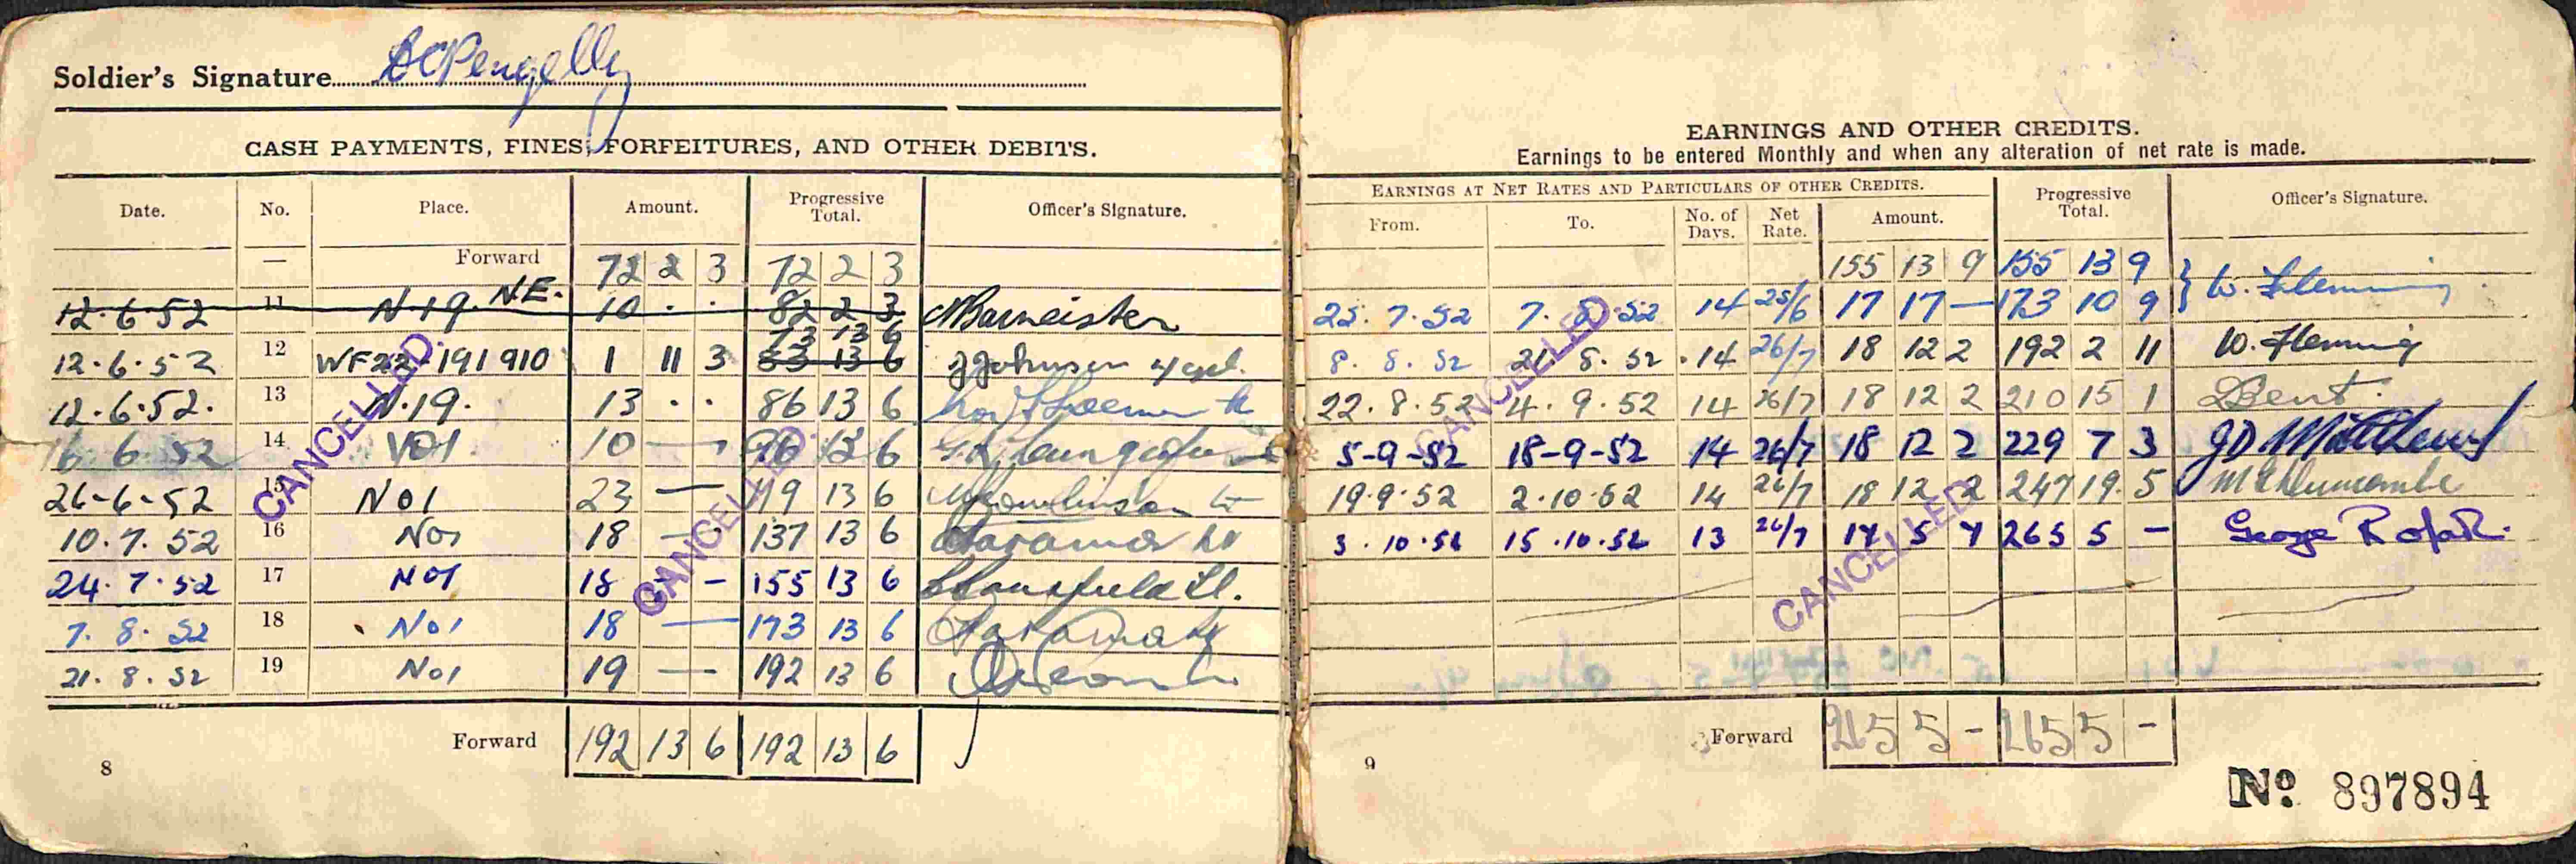 Soldier's Signature
CASH PAYMENTS, FINES, FORFEITURES, AND OTHER DEBITS.
Date. No. Place. Amount. Progressive Total. Officer's Signature.
— Forward 72 2 3 72 2 3
12.6.52 11 N.19. N.E. 10 . . 82 2 3
73 13 6
12.6.52 12 WF22-191910 1 11 3 83 13 6 J Johnson
12.6.52. 13 N.19. 13 . . 86 13 6
16 6 52 14 V01 10 — 96 13 6
26-6-52 15 N01 23 — 119 13 6
10.7.52 16 No1 18 — 137 13 6
24.7.52 17 N01 18 - - 155 13 6 Lt.
7.8.52 18 No1 18 — 173 13 6
21.8.52 19 No1 19 — 192 13 6
Forward 192 13 6 192 13 6
8
CANCELLED
CANCELLED
EARNINGS AND OTHER CREDITS.
Earnings to be entered Monthly and when any alteration of net rate is made.
EARNINGS AT NET RATES AND PARTICULARS OF OTHER CREDITS. Progressive Total. Officer's Signature.
From. To. No. of Days. Net Rate. Amount.
155 13 9 155 13 9
25.7.52 7.8.52 14 25/6 17 17 — 173 10 9 W. Fleming
8.8.52 21.8.52 14 26/7 18 12 2 192 2 11 W. Fleming
22.8.52 4.9.52 14 26/7 18 12 2 210 15 1 Bent.
5-9-52 18-9-52 14 26/7 18 12 2 229 7 3 JD Matthews
19.9.52 2.10.52 14 26/7 18 12 2 247 19 5
3.10.52 15.10.52 13 26/7 17 5 7 265 5 — George R
CANCELLED
CANCELLED
Forward 265 5 - 265 5 -
9
No. 897894